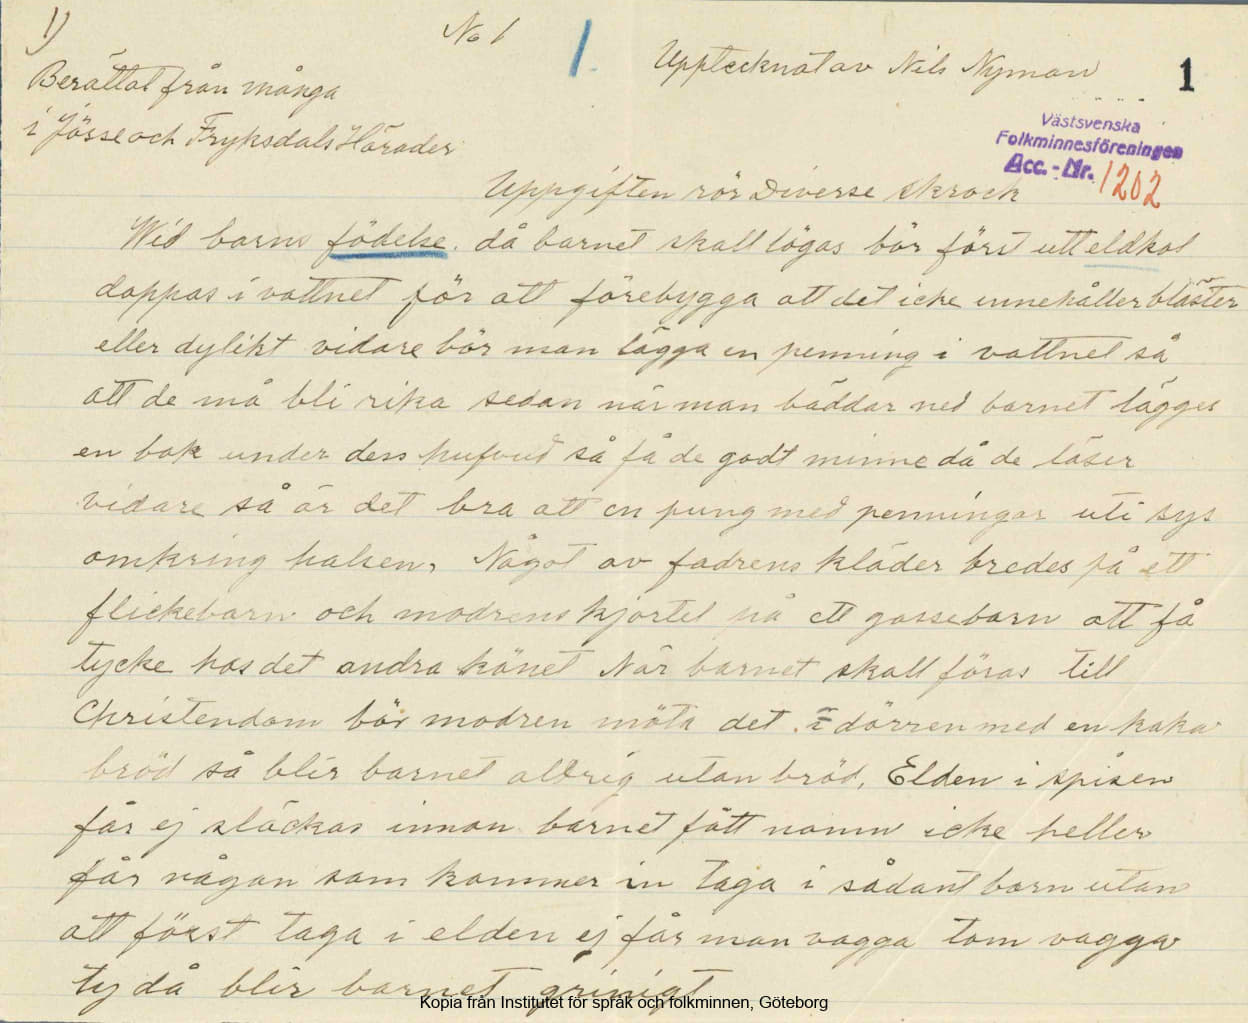 1)
No 1
1.
Upptecknat av Nils Nyman
1
Berättat från många
i Jösse och Fryksdals Härader
Västsvenska
Folkminnesföreningen
Acc.-Nr. 1202
Uppgiften rör Diverse skrock
Wid barns födelse. då barnet skall lögas bör först ett eldkol
doppas i vattnet för att förebygga att det icke innehåller bläster
eller dylikt vidare bör man lägga en penning i vattnet så
att de må bli rika sedan när man bäddar ned barnet lägges
en bok under dess hufvud så få de godt minne då de läser
vidare så är det bra att en pung med penningar uti sys
omkring halsen, Något av fadrens kläder bredes på ett
flickebarn och modrens kjortel på ett gossebarn att få
tycke hos det andra könet När barnet skall föras till
Christendom bör modren möta det i dörren med en kaka
bröd så blir barnet aldrig utan bröd, Elden i spisen
får ej släckas innan barnet fått namn icke heller
får någon som kommer in taga i sådant barn utan
att först taga i elden ej får man vagga tom vagga
ty då blir barnet grinigt
Kopia från Institutet för språk och folkminnen, Göteborg